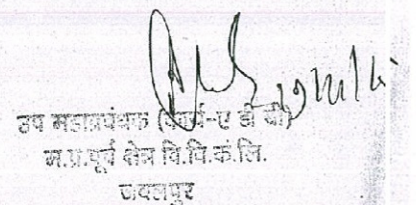 उप महाप्रबंधक (कार्य-ए डी बी)
म.प्र.पूर्व क्षेत्र वि.वि.कं.लि.
जबलपुर